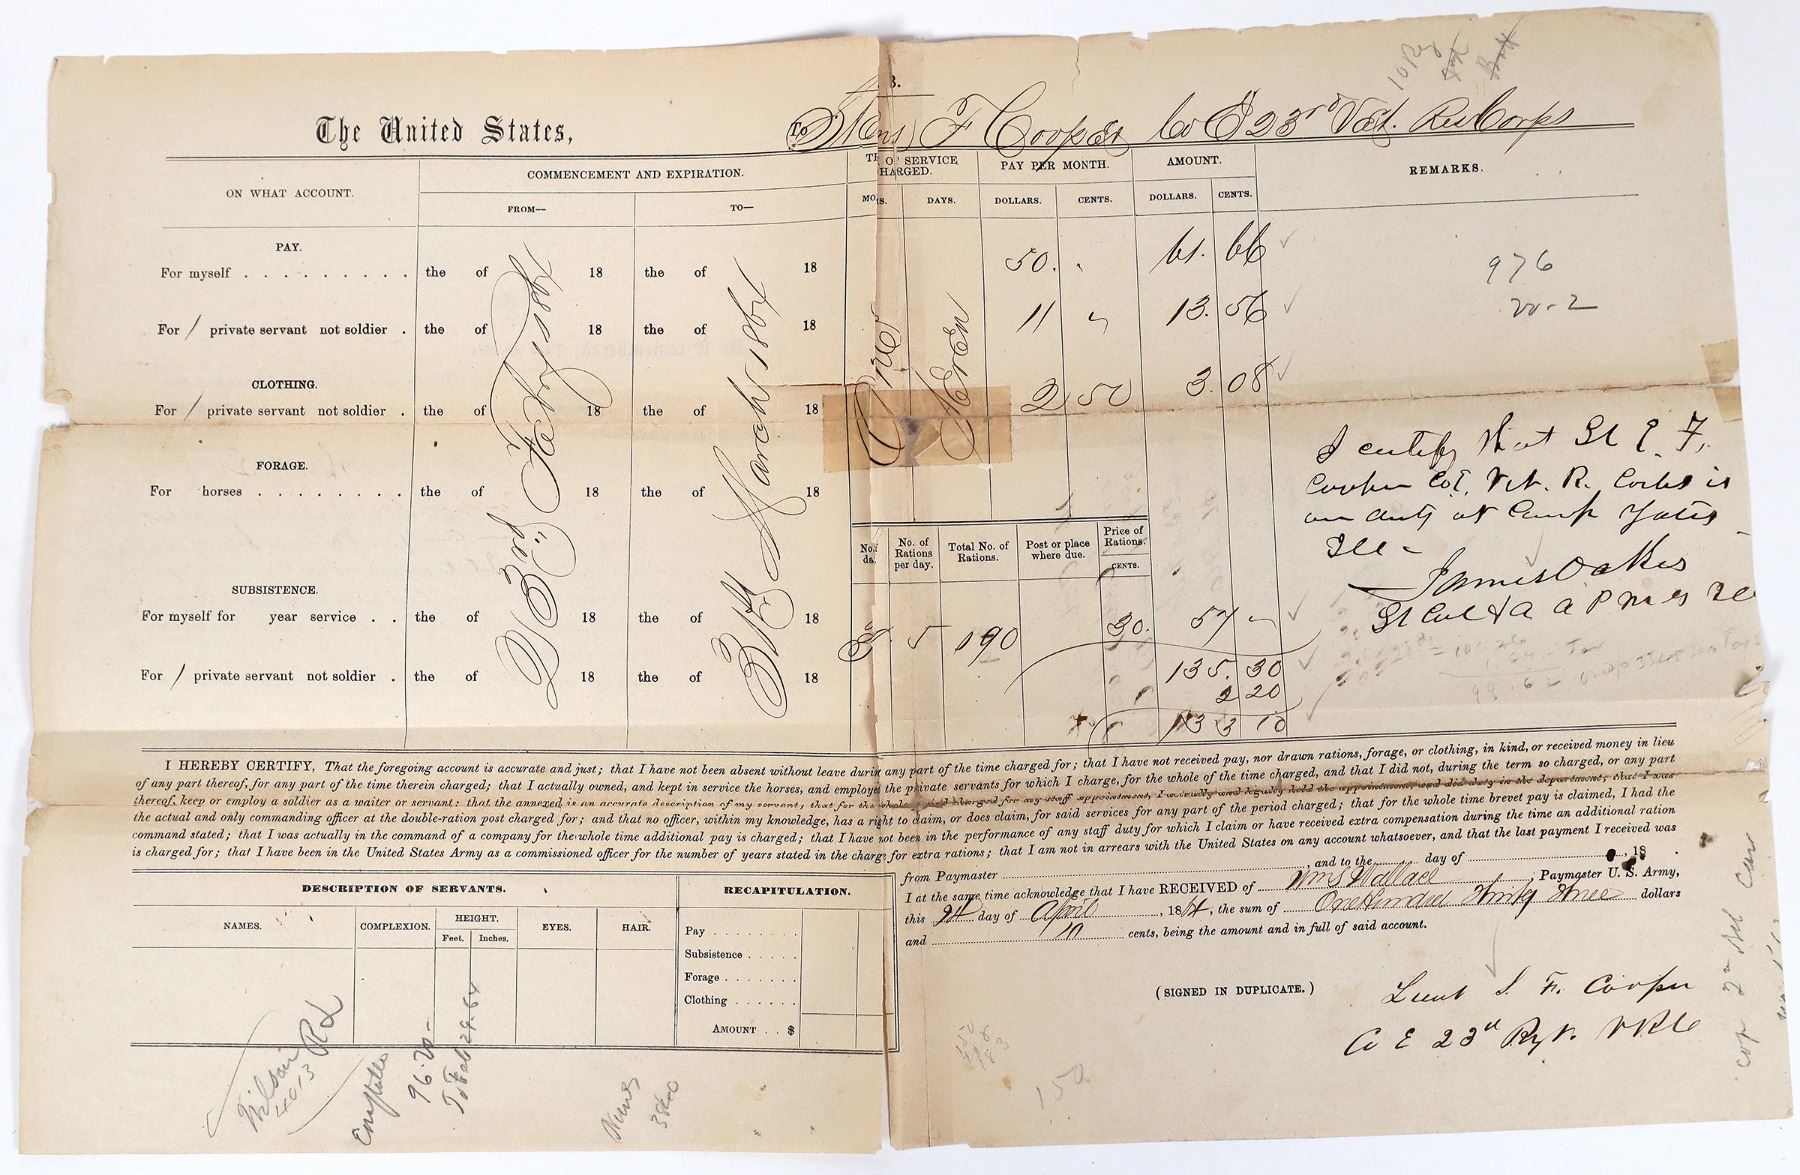 10 Reg
B.
The United States, To Stens F Cooper Co E 23rd Vet. Res Corps
ON WHAT ACCOUNT. COMMENCEMENT AND EXPIRATION. OF SERVICE CHARGED. PAY PER MONTH. AMOUNT. REMARKS.
FROM— TO— MOS. DAYS. DOLLARS. CENTS. DOLLARS. CENTS.
PAY.
For myself . . . . . . . . . the of 18 the of 18 50. " 61. 66
976
For 1 private servant not soldier . the of 18 the of 18 11 " 13. 56
22-2
CLOTHING.
For 1 private servant not soldier . the of 18 the of 18 2 50 3. 08
23rd Feby 1864
31st March 1864
One Seven
FORAGE.
For horses . . . . . . . . the of 18 the of 18
I certify that Lt S. F.
Cooper Co E. Vet. R. Corps is
on duty at Camp Yates
Ill -
James Oakes
Lt Col & A A P M G Ill
No. of da. No. of Rations per day. Total No. of Rations. Post or place where due. Price of Rations. CENTS.
SUBSISTENCE.
For myself for year service . . the of 18 the of 18 5 190 30. 57 -
For 1 private servant not soldier . the of 18 the of 18 135. 30
2 20
133 10
99.62
I HEREBY CERTIFY, That the foregoing account is accurate and just; that I have not been absent without leave during any part of the time charged for; that I have not received pay, nor drawn rations, forage, or clothing, in kind, or received money in lieu
of any part thereof, for any part of the time therein charged; that I actually owned, and kept in service the horses, and employed the private servants for which I charge, for the whole of the time charged, and that I did not, during the term so charged, or any part
thereof, keep or employ a soldier as a waiter or servant; that the annexed is an accurate description of my servant; that for the whole period charged for my staff appointment, I actually and legally held the appointment, and did duty in the department; that I was
the actual and only commanding officer at the double-ration post charged for; and that no officer, within my knowledge, has a right to claim, or does claim, for said services for any part of the period charged; that for the whole time brevet pay is claimed, I had the
command stated; that I was actually in the command of a company for the whole time additional pay is charged; that I have not been in the performance of any staff duty for which I claim or have received extra compensation during the time an additional ration
is charged for; that I have been in the United States Army as a commissioned officer for the number of years stated in the charge for extra rations; that I am not in arrears with the United States on any account whatsoever, and that the last payment I received was
from Paymaster , and to the day of , 18 .
I at the same time acknowledge that I have RECEIVED of Wm S Wallace , Paymaster U. S. Army,
this 9th day of April , 1864, the sum of One Hundred Thirty Three dollars
and 10 cents, being the amount and in full of said account.
DESCRIPTION OF SERVANTS. RECAPITULATION.
NAMES. COMPLEXION. HEIGHT. EYES. HAIR.
Feet. Inches.
Pay . . . . . . . .
Subsistence . . . . .
Forage . . . . . . .
Clothing . . . . . .
AMOUNT . . $
(SIGNED IN DUPLICATE.)
Lieut S. F. Cooper
Co E 23d Rgt. V R C
Wilson Rd
4013
96.20-
To Feb 29.64
150